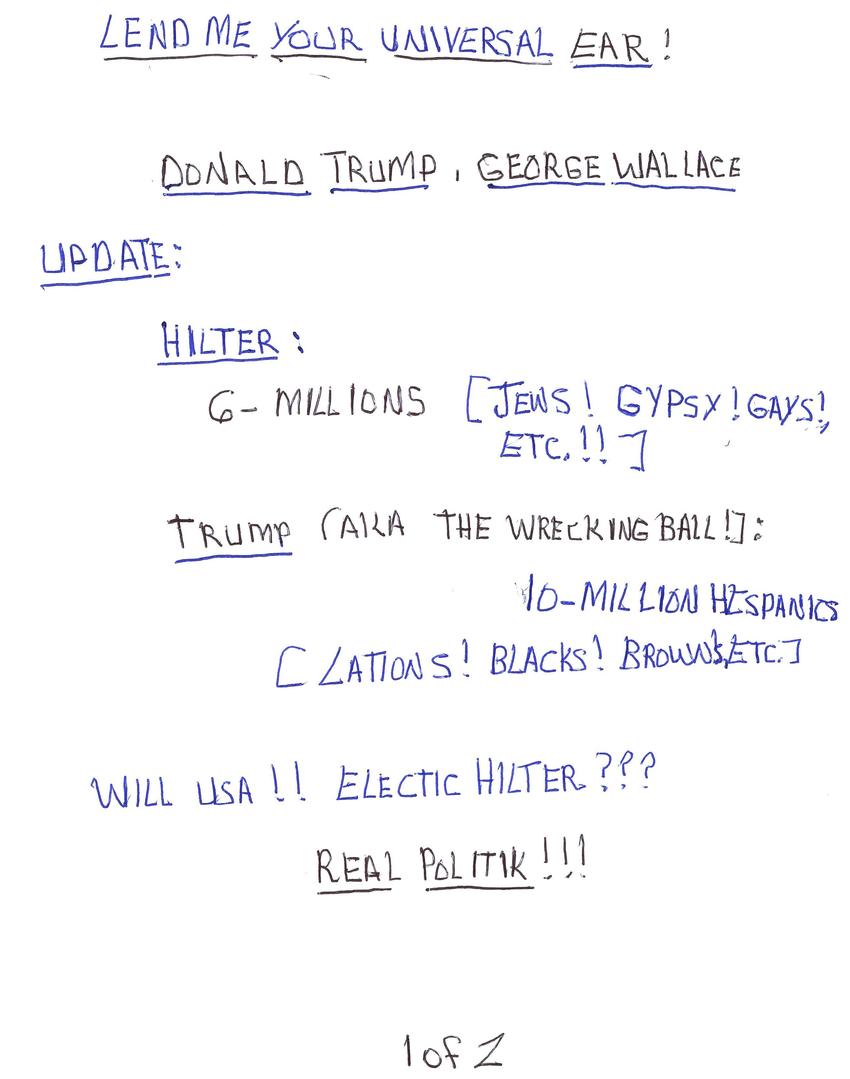 LEND ME YOUR UNIVERSAL EAR!
DONALD TRUMP, GEORGE WALLACE
UPDATE:
HILTER:
6- MILLIONS [JEWS! GYPSY! GAYS!,
ETC.!!]
TRUMP (AKA THE WRECKING BALL!]:
10-MILLION HISPANICS
[LATIONS! BLACKS! BROWN'S, ETC.]
WILL USA!! ELECTIC HILTER???
REAL POLITIK!!!
1 of 2